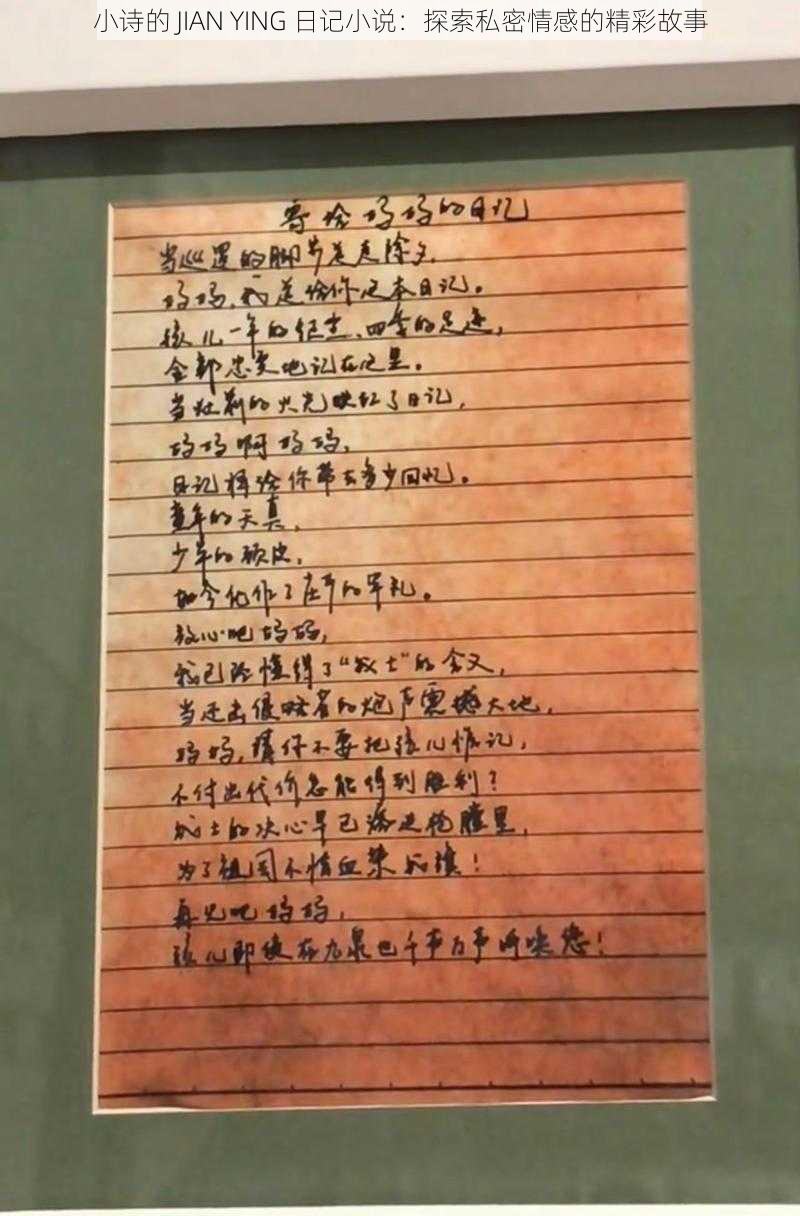 小诗的 JIAN YING 日记小说：探索私密情感的精彩故事
寄给妈妈的日记
当巡逻的脚步送走除夕,
妈妈,我送给你这本日记。
孩儿一年的纪念、四季的足迹,
全部忠实地记在这里。
当灶前的火光映红了日记,
妈妈啊妈妈,
日记将给你带去多少回忆。
童年的天真,
少年的顽皮,
如今化作了庄严的军礼。
放心吧妈妈,
我已经懂得了“战士”的含义,
当还击侵略者的炮声震撼大地,
妈妈,请你不要把孩儿惦记,
不付出代价怎能得到胜利?
战士的决心早已溶进枪膛里,
为了祖国不惜血染战旗!
再见吧妈妈,
孩儿即使在九泉也千声万声呼唤您!